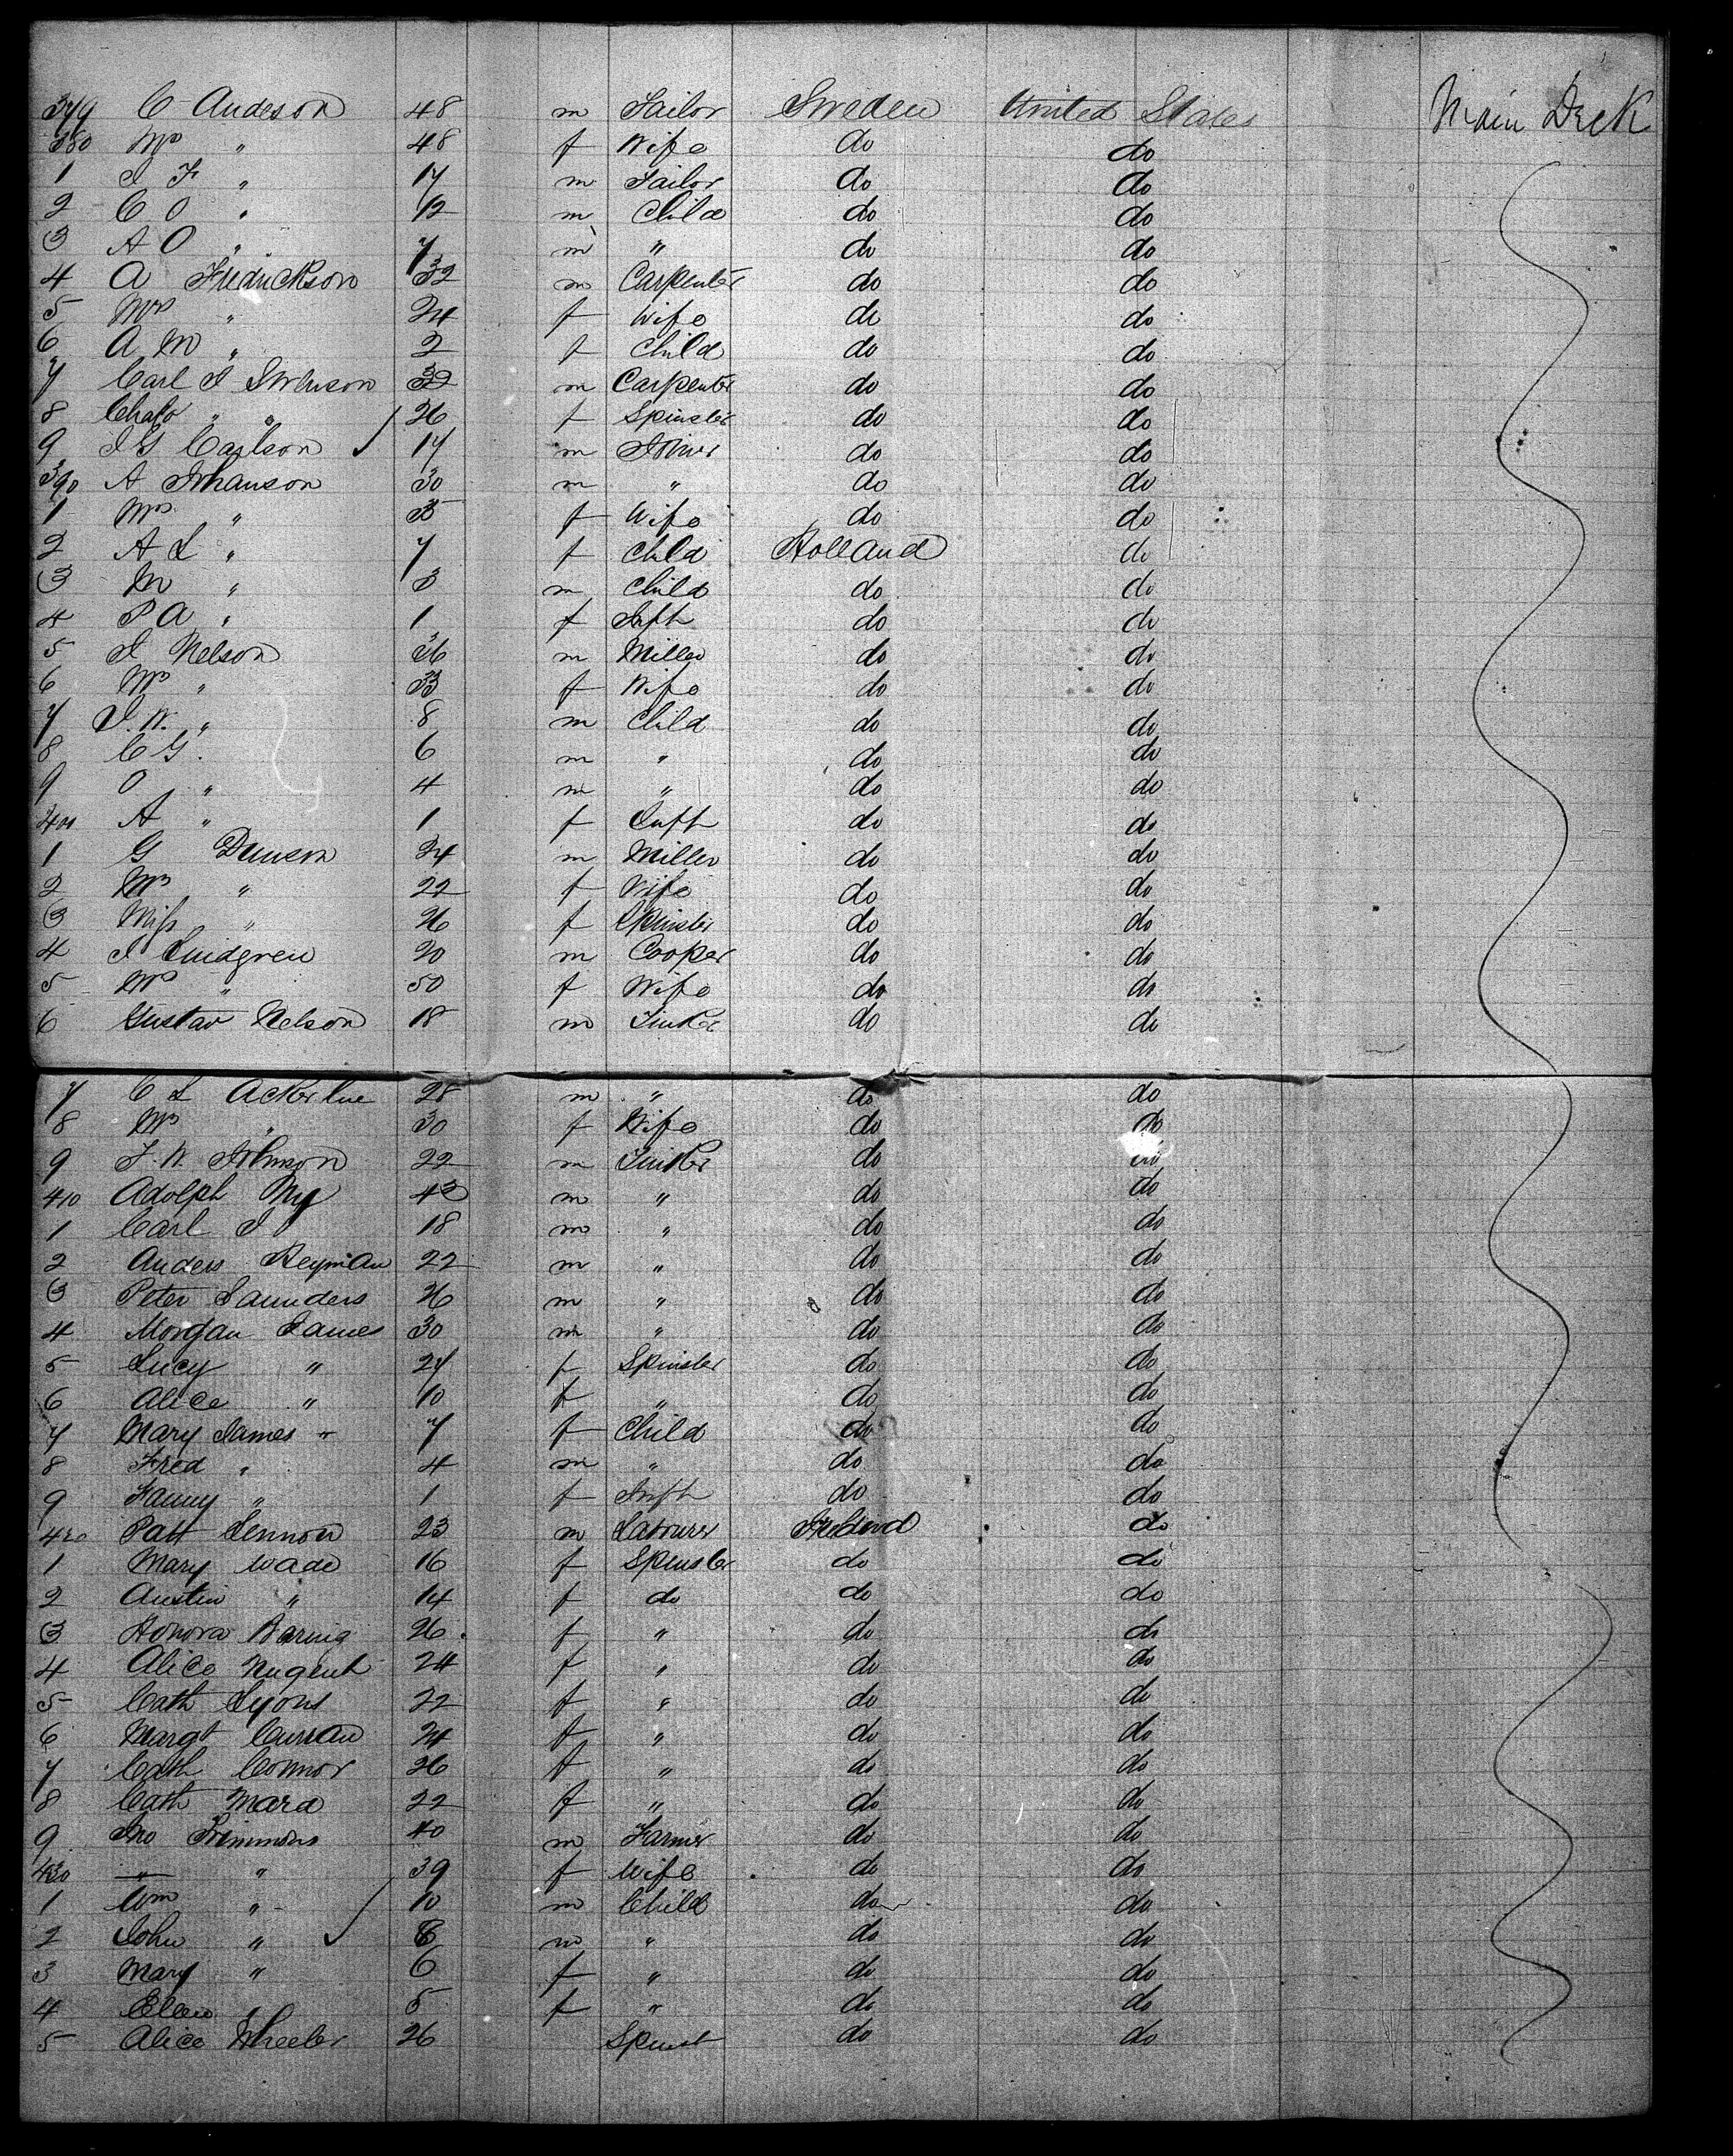 379 C Andeson 48 m Tailor Sweden United States Main Deck
380 Mrs " 48 f Wife do do
1 J F " 17 m Tailor do do
2 C O " 12 m Child do do
3 A O " 7 m " do do
4 A Fredrickson 32 m Carpenter do do
5 Mrs " 24 f Wife do do
6 A M " 2 f Child do do
7 Carl J 32 m Carpenter do do
8 " " 26 f Spinster do do
9 J G Carlson 17 m do do
390 A Johanson 30 m " do do
1 Mrs " 35 f Wife do do
2 A L " 7 f Child Holland do
3 M " 3 m Child do do
4 P A " 1 f Inft do do
5 J Nelson 36 m Miller do do
6 Mrs " 33 f Wife do do
7 J. W. " 8 m Child do do
8 C G. 6 m " do do
9 O " 4 m " do do
400 A " 1 f Inft do do
1 G 24 m Miller do do
2 Mrs " 22 f Wife do do
3 Miss " 26 f Spinster do do
4 J Lindgren 20 m Cooper do do
5 Mrs " 50 f Wife do do
6 Gustav Nelson 18 m Tinker do do
7 C L 28 m " do do
8 Mrs " 30 f Wife do do
9 J. W. Johnson 22 m Tinker do do
410 Adolph 43 m " do do
1 Carl J 18 m " do do
2 Anders 22 m " do do
3 Peter Saunders 26 m " do do
4 Morgan James 30 m " do do
5 Lucy " 27 f Spinster do do
6 Alice " 10 f " do do
7 Mary James " 7 f Child do do
8 Fred " 4 m " do do
9 Fanny " 1 f Inft do do
420 Patt Lennon 23 m Labourer Ireland do
1 Mary Wade 16 f Spinster do do
2 Austin " 14 f do do do
3 Honora 26 f " do do
4 Alice Nugent 24 f " do do
5 Cath Lyons 22 f " do do
6 Margt Curran 24 f " do do
7 Cath Connor 26 f " do do
8 Cath 22 f " do do
9 Jno 40 m Farmer do do
430 — " 39 f Wife do do
1 Wm " 10 m Child do do
2 John " 8 m " do do
3 Mary " 6 f " do do
4 Ellen " 5 f " do do
5 Alice Wheeler 26 Spinst do do